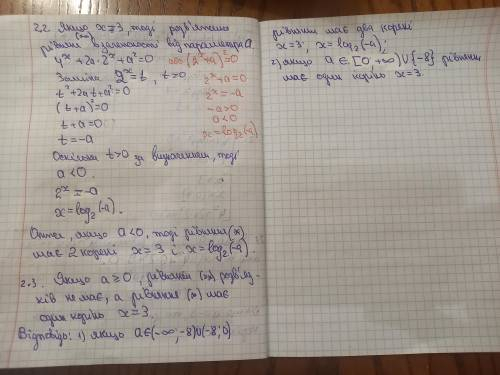 2.2. Якщо x≠3, тоді розв'яжемо
рівняння (**) в залежності від параметра a.
4ˣ+2a·2ˣ+a²=0
або (2ˣ+a)=0
Заміна 2ˣ=t, t>0
2ˣ+a=0
t²+2at+a²=0
2ˣ=-a
(t+a)²=0
-a>0
t+a=0
a<0
t=-a
x=log₂(-a)
Оскільки t>0 за визначенням, тоді
a<0.
2ˣ=-a
x=log₂(-a).
Отже, якщо a<0, тоді рівняння (*)
має 2 корені x=3 і x=log₂(-a).
2.3. Якщо a≥0, рівняння (**) розв'яз-
ків не має, а рівняння (*) має
один корінь x=3.
Відповідь: 1) якщо a∈(-∞;-8)∪(-8;0)
рівняння має два корені
x=3; x=log₂(-a);
2) якщо a∈[0,+∞)∪{-8} рівняння
має один корінь x=3.